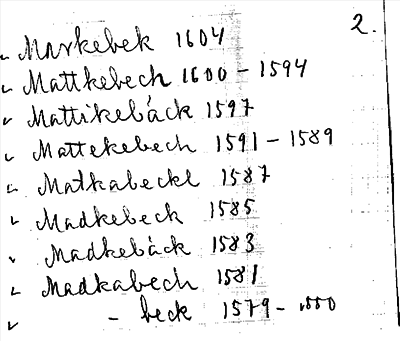 2.
Markebek 1604
Mattkebech 1600 - 1594
Mattikebäck 1597
Mattekebech 1591 - 1589
Matkabeckl 1587
Madkebeck 1585
Madkebäck 1583
Madkabech 1581
- beck 1579 -